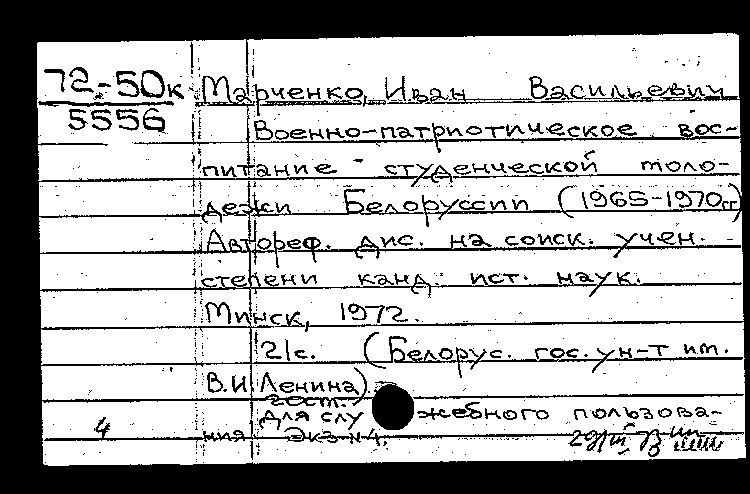 72-50к Марченко, Иван Васильевич
5556
Военно-патриотическое вос-
питание студенческой моло-
дежи Белоруссии (1965-1970гг)
Автореф. дис. на соиск. учен.
степени канд. ист. наук.
Минск, 1972.
21с. (Белорус. гос. ун-т им.
В.И. Ленина)
Для служебного пользова-
4 ния Экз №4.